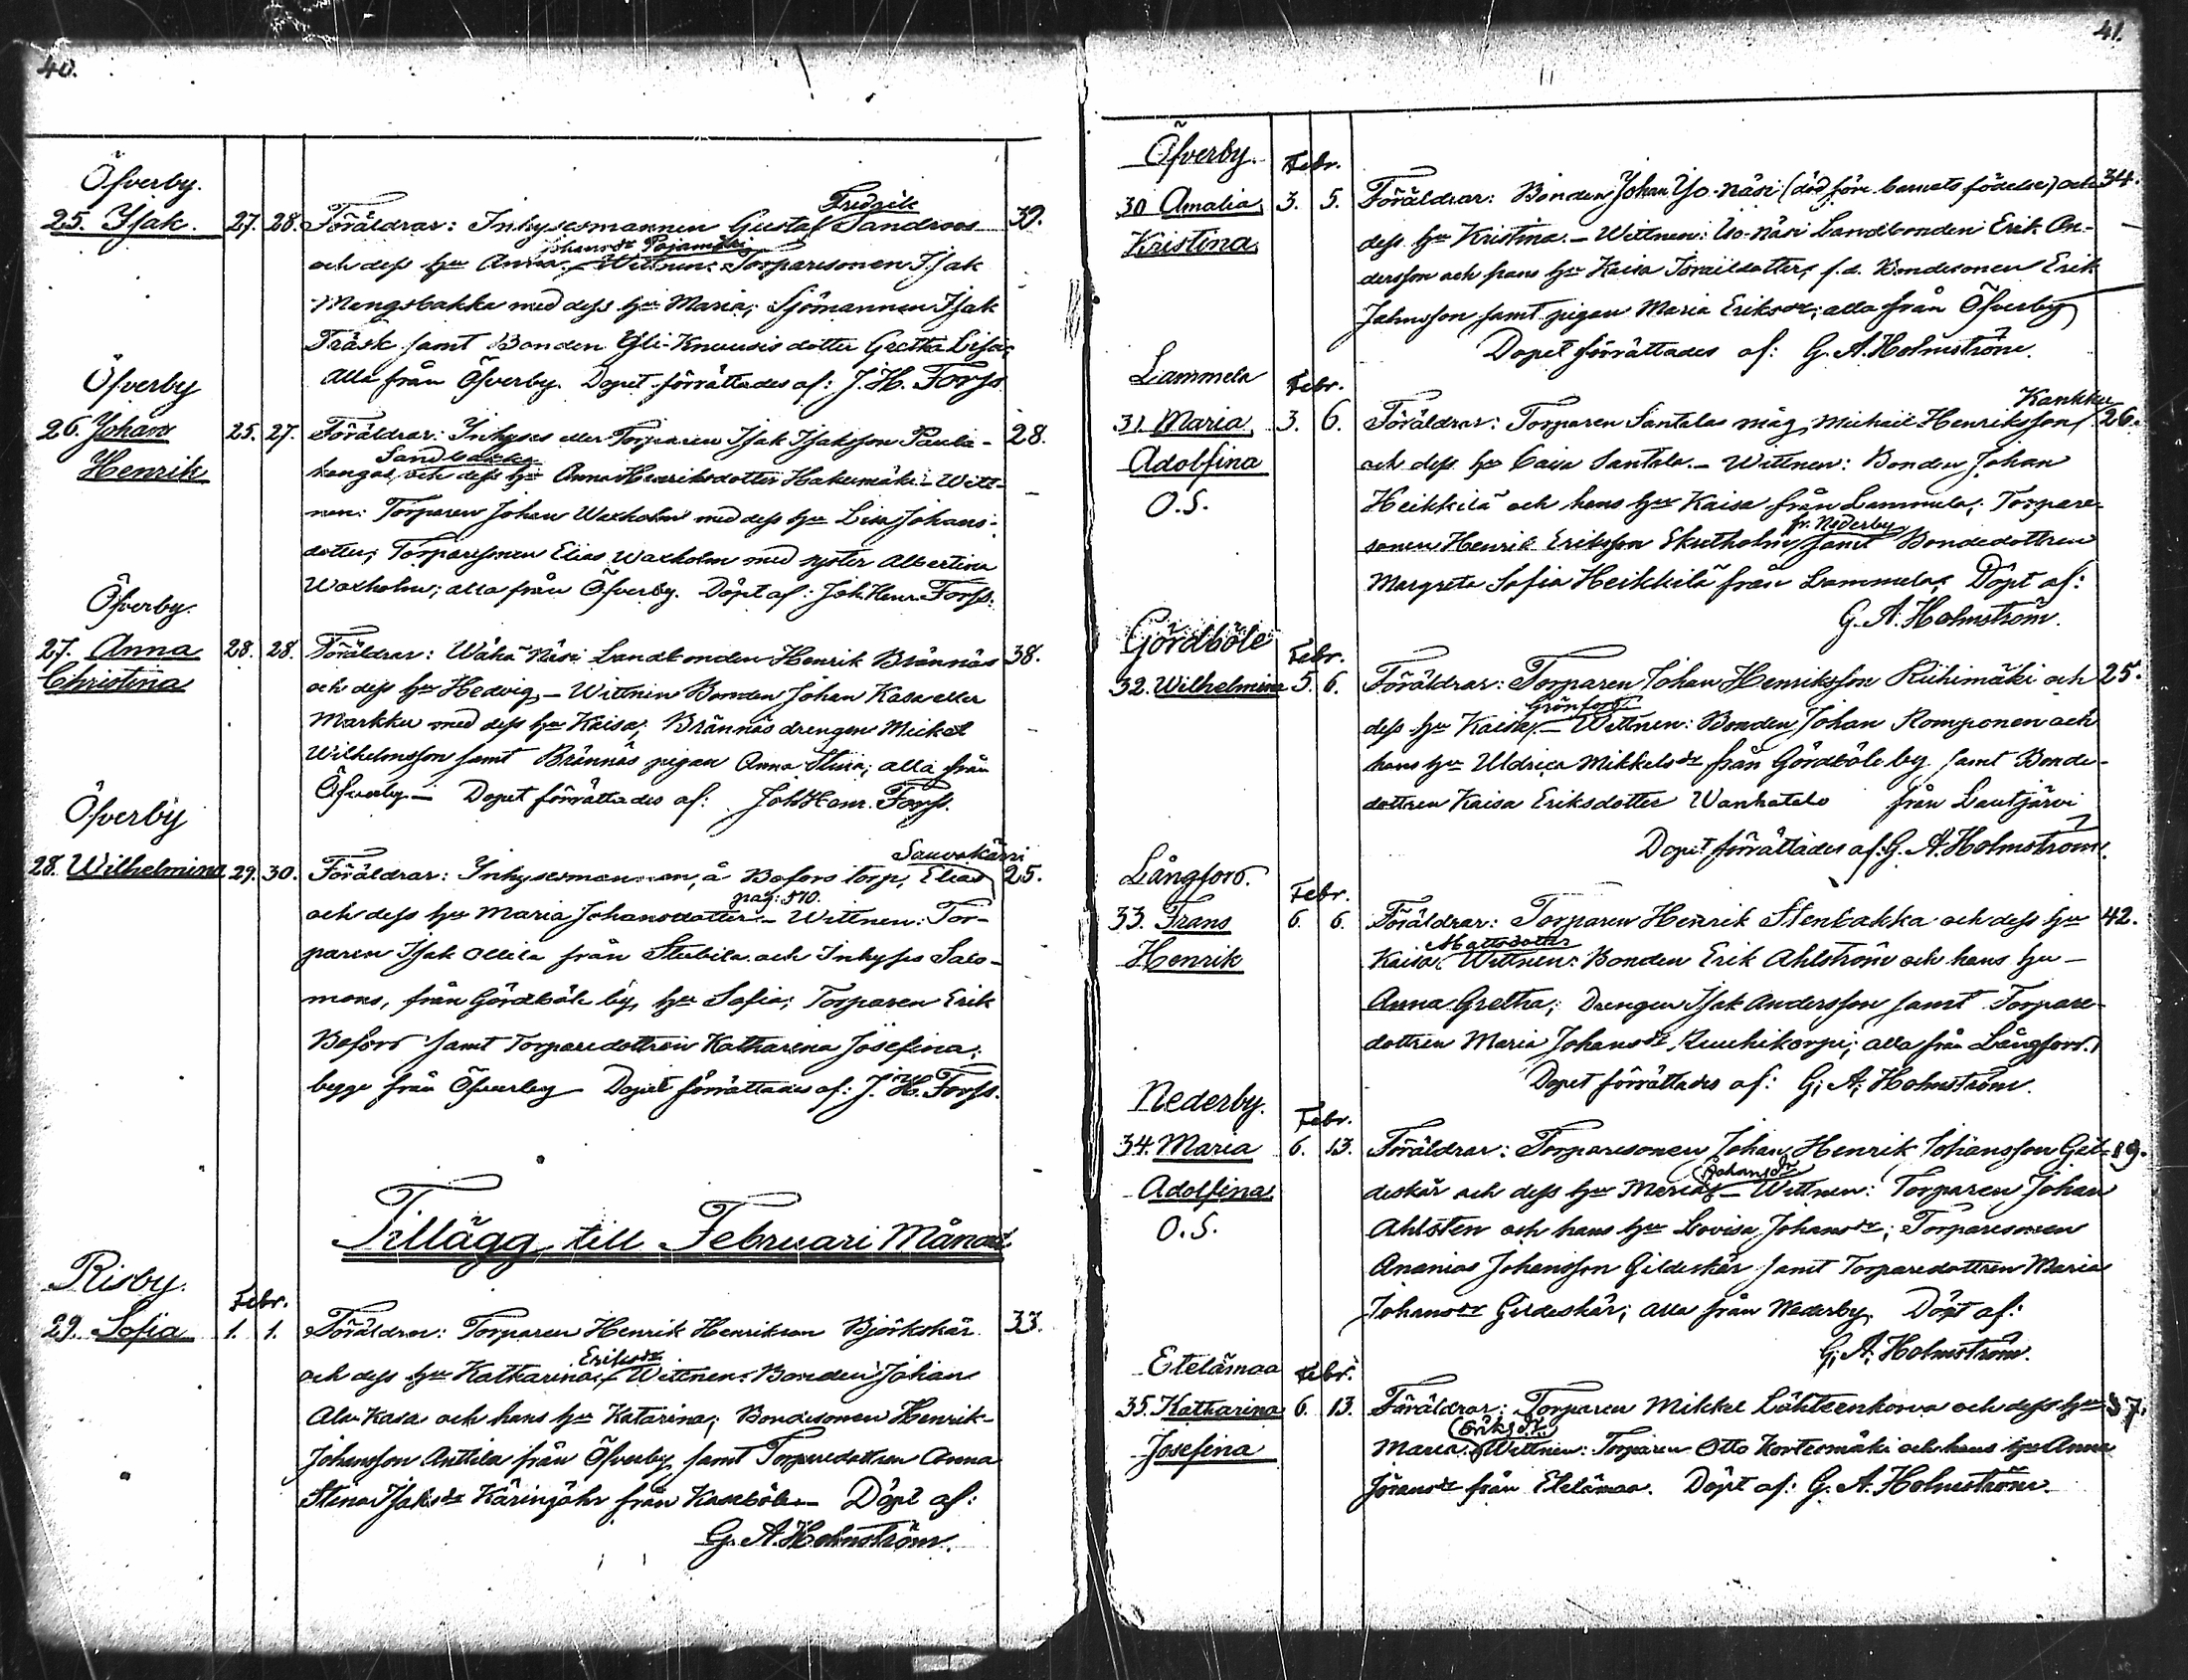 40.
Öfverby.
25. Isak. 27. 28. Föräldrar: Inhysesmannen Gustaf Fredrik Sandroos 39.
och dess hu Anna Johansdr Pajamäki. – Wittnen: Torparesonen Isak
Mengsbakka med dess hu Maria; Sjömannen Isak
Träsk samt Bonden Yli-Knuusis dotter Gretka Lisa;
Alla från Öfverby. Dopet förrättades af: J. H. Forss.
Öfverby
26. Johan 25. 27. Föräldrar: Inhyses eller Torparen Isak Isaksson Paula- 28.
Henrik kangas Sandbacka och dess hu Anna Henriksdotter Hakumäki – Witt-
nen: Torparen Johan Waxholm med dess hu Lisa Johans-
dotter; Torparesonen Elias Waxholm med syster Albertina
Waxholm; alla från Öfverby. Döpt af: Joh. Henr. Forss.
Öfverby.
27. Anna 28. 28. Föräldrar: Wähä Näsi Landbonden Henrik Brännäs 38.
Christina och dess hu Hedvig. – Wittnen Bonden Johan Kasa eller
Markku med dess hu Kaisa; Brännäs drengen Mickel
Wilhelmsson samt Brännäs pigan Anna Stina; alla från
Öfverby – Dopet förrättades af: Joh Henr. Forss.
Öfverby
28. Wilhelmina 29. 30. Föräldrar: Inhysesmannen, å Bofors torp, Elias Sauvakärri 25.
och dess hu Maria Johansdotter pag: 510. – Wittnen: Tor-
paren Isak Ollila från Stubila och Inhyses Salo-
mons, från Gördböle by, hu Sofia; Torparen Erik
Bofors samt Torparedottren Katharina Josefina;
begge från Öfverby – Dopet förrättades af: J. H. Forss.
Tillägg till Februari Månad.
Risby.
Febr.
29. Sofia 1. 1. Föräldrar: Torparen Henrik Henrikson Björkskär 33.
och dess hu Katharina Eriksdr. Wittnen: Bonden Johan
Ala-Kasa och hans hu Katarina; Bondesonen Henrik
Johansson Anttila från Öfverby samt Torparedottren Anna
Stina Isaksdr Käringöhr från Kaseböle. – Döpt af:
G. A. Holmström.
41.
Öfverby. Febr.
30 Amalia 3. 5. Föräldrar: Bonden Johan Yso-Näsi (död före barnets födelse) och 34.
Kristina dess hu Kristina. – Wittnen: Iso-Näsi Landbonden Erik An-
dersson och hans hu Kaisa Israilsdotter, f.d. Bondesonen Erik
Johnsson samt pigan Maria Eriksdr; alla från Öfverby
Dopet förrättades af: G. A. Holmström.
Lammela Febr.
31. Maria 3. 6. Föräldrar: Torparen Santalas måg, Michaël Henriksson Kankku 26.
Adolfina och dess hu Caisa Santala. – Wittnen: Bonden Johan
O.S. Heikkilä och hans hu Kaisa från Lammela; Torpare-
sonen Henrik Eriksson Skutholm fr. Nederby samt Bondedottren
Margreta Sofia Heikkilä från Lammela; Döpt af:
G. A. Holmström.
Gördböle Febr.
32. Wilhelmina 5. 6. Föräldrar: Torparen Johan Henriksson Riihimäki och 25.
dess hu Kaisa Grönfors. – Wittnen: Bonden Johan Romponen och
hans hu Uldrica Mikkelsdr från Gördböle by samt Bonde-
dottren Kaisa Eriksdotter Wanhatalo från Lautjärvi
Dopet förrättades af: G. A. Holmström.
Långfors. Febr.
33. Frans 6. 6. Föräldrar: Torparen Henrik Stenbakka och dess hu 42.
Henrik Kaisa Mattsdotter. Wittnen: Bonden Erik Ahlström och hans hu –
Anna Gretha; Drengen Isak Andersson samt Torpare-
dottren Maria Johansdr Ruuhikorpi; alla från Långfors.
Dopet förrättades af: G. A. Holmström.
Nederby. Febr.
34. Maria 6. 13. Föräldrar: Torparesonen Johan Henrik Johansson Gil- 89.
Adolfina deskär och dess hu Maria Johansdr – Wittnen: Torparen Johan
O.S. Ahlsten och hans hu Lovisa Johansdr; Torparesonen
Ananias Johansson Gildeskär samt Torparedottren Maria
Johansdr Gildeskär; alla från Nederby. Döpt af:
G. A. Holmström.
Etelämaa Febr.
35. Katharina 6. 13. Föräldrar: Torparen Mikkel Lähteenkorva och dess hu 37.
Josefina Maria Eriksdr. Wittnen: Torparen Otto Kortesmäki och hans hu Anna
Joransdr från Etelämaa. Döpt af: G. A. Holmström.